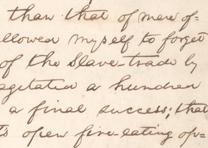 than that of mere of-
llowed myself to forget
of the slave-trade by
agitated a hundred
a final success; that
ts open fire-eating op-